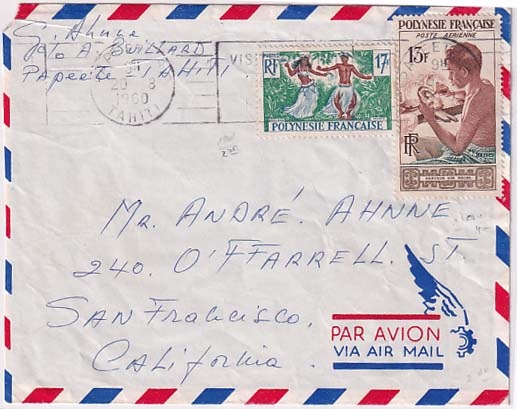 G. Ahnne
A. Buillard
Papeete TAHITI
20 - 8
1960
TAHITI
VISI
RF
17F
POLYNÉSIE FRANÇAISE
POLYNÉSIE FRANÇAISE
POSTE AÉRIENNE
13F
RF
GRAVEUR SUR NACRE
MR. ANDRÉ. AHNNE
240. O'FFARRELL. ST.
SAN FRANCISCO.
CALIFORNIA.
PAR AVION
VIA AIR MAIL